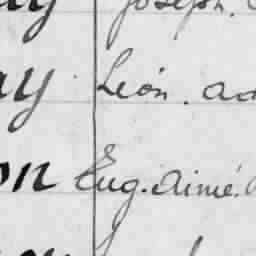 ay Joseph.
ay Léon. ad
on Eug. Aimé.